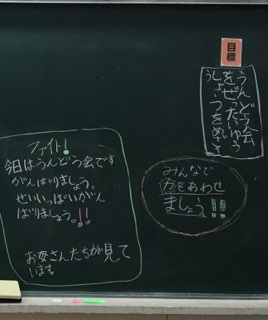 目標
うんどう会
をぜったいゆう
しょうをめざす
ファイト!
今日はうんどう会です
がんばりましょう。
せいいっぱいがん
ばりましょう。!!
お母さんたちが見て
います
みんなで
力をあわせ
ましょう!!